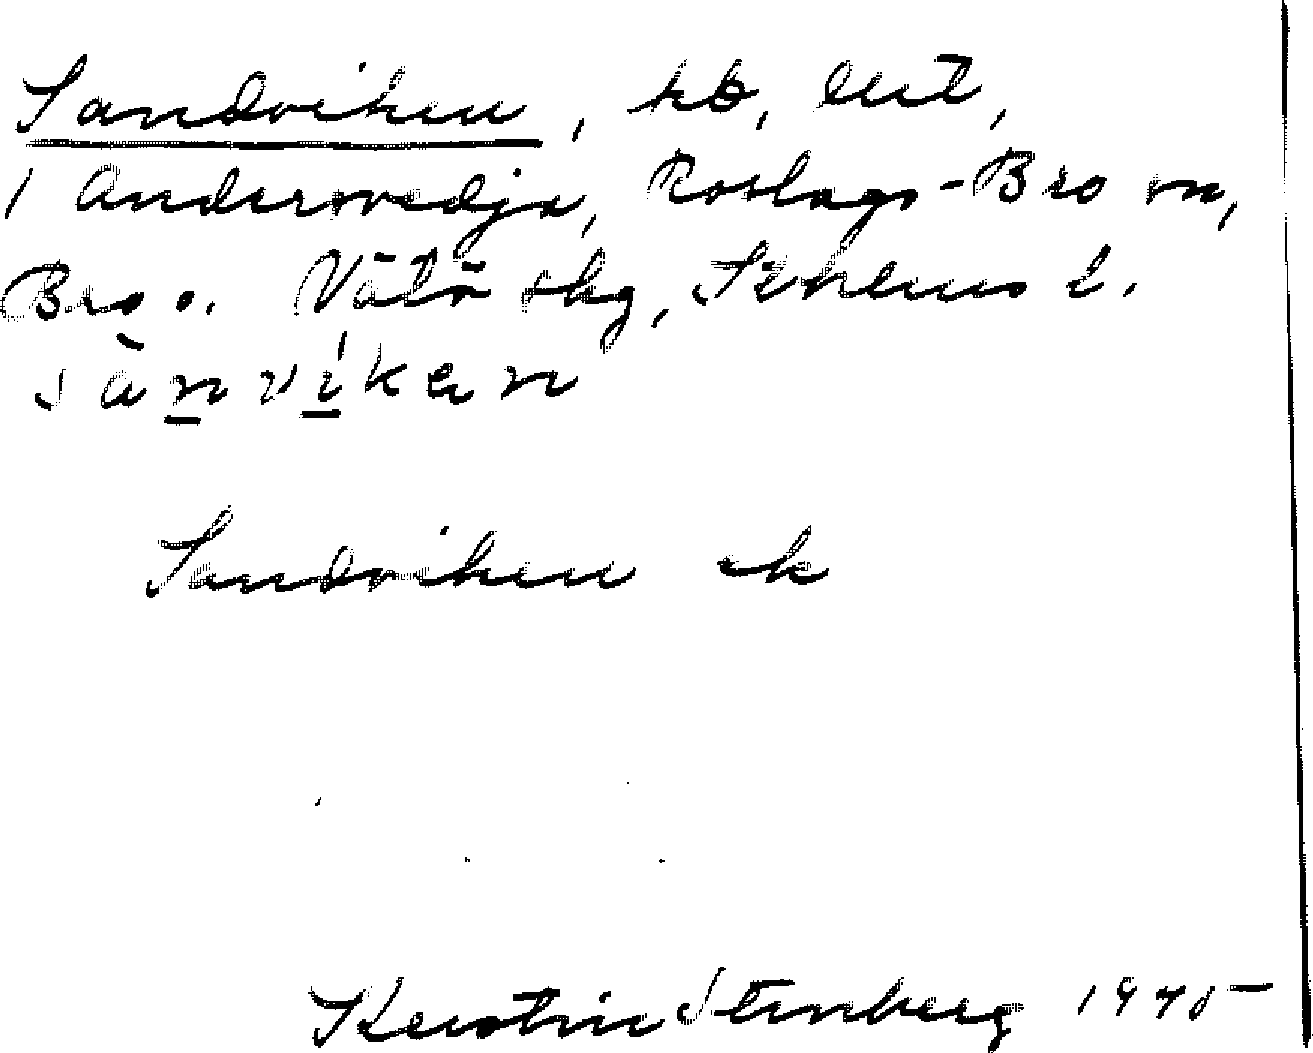 Sandviken, hb, urt,
1 Andersvedja, Roslags-Bro sn,
Bro o. Vätö skg, Sthlms l.
sànvíkan
Sandviken ek
Kerstin Stenberg 1945